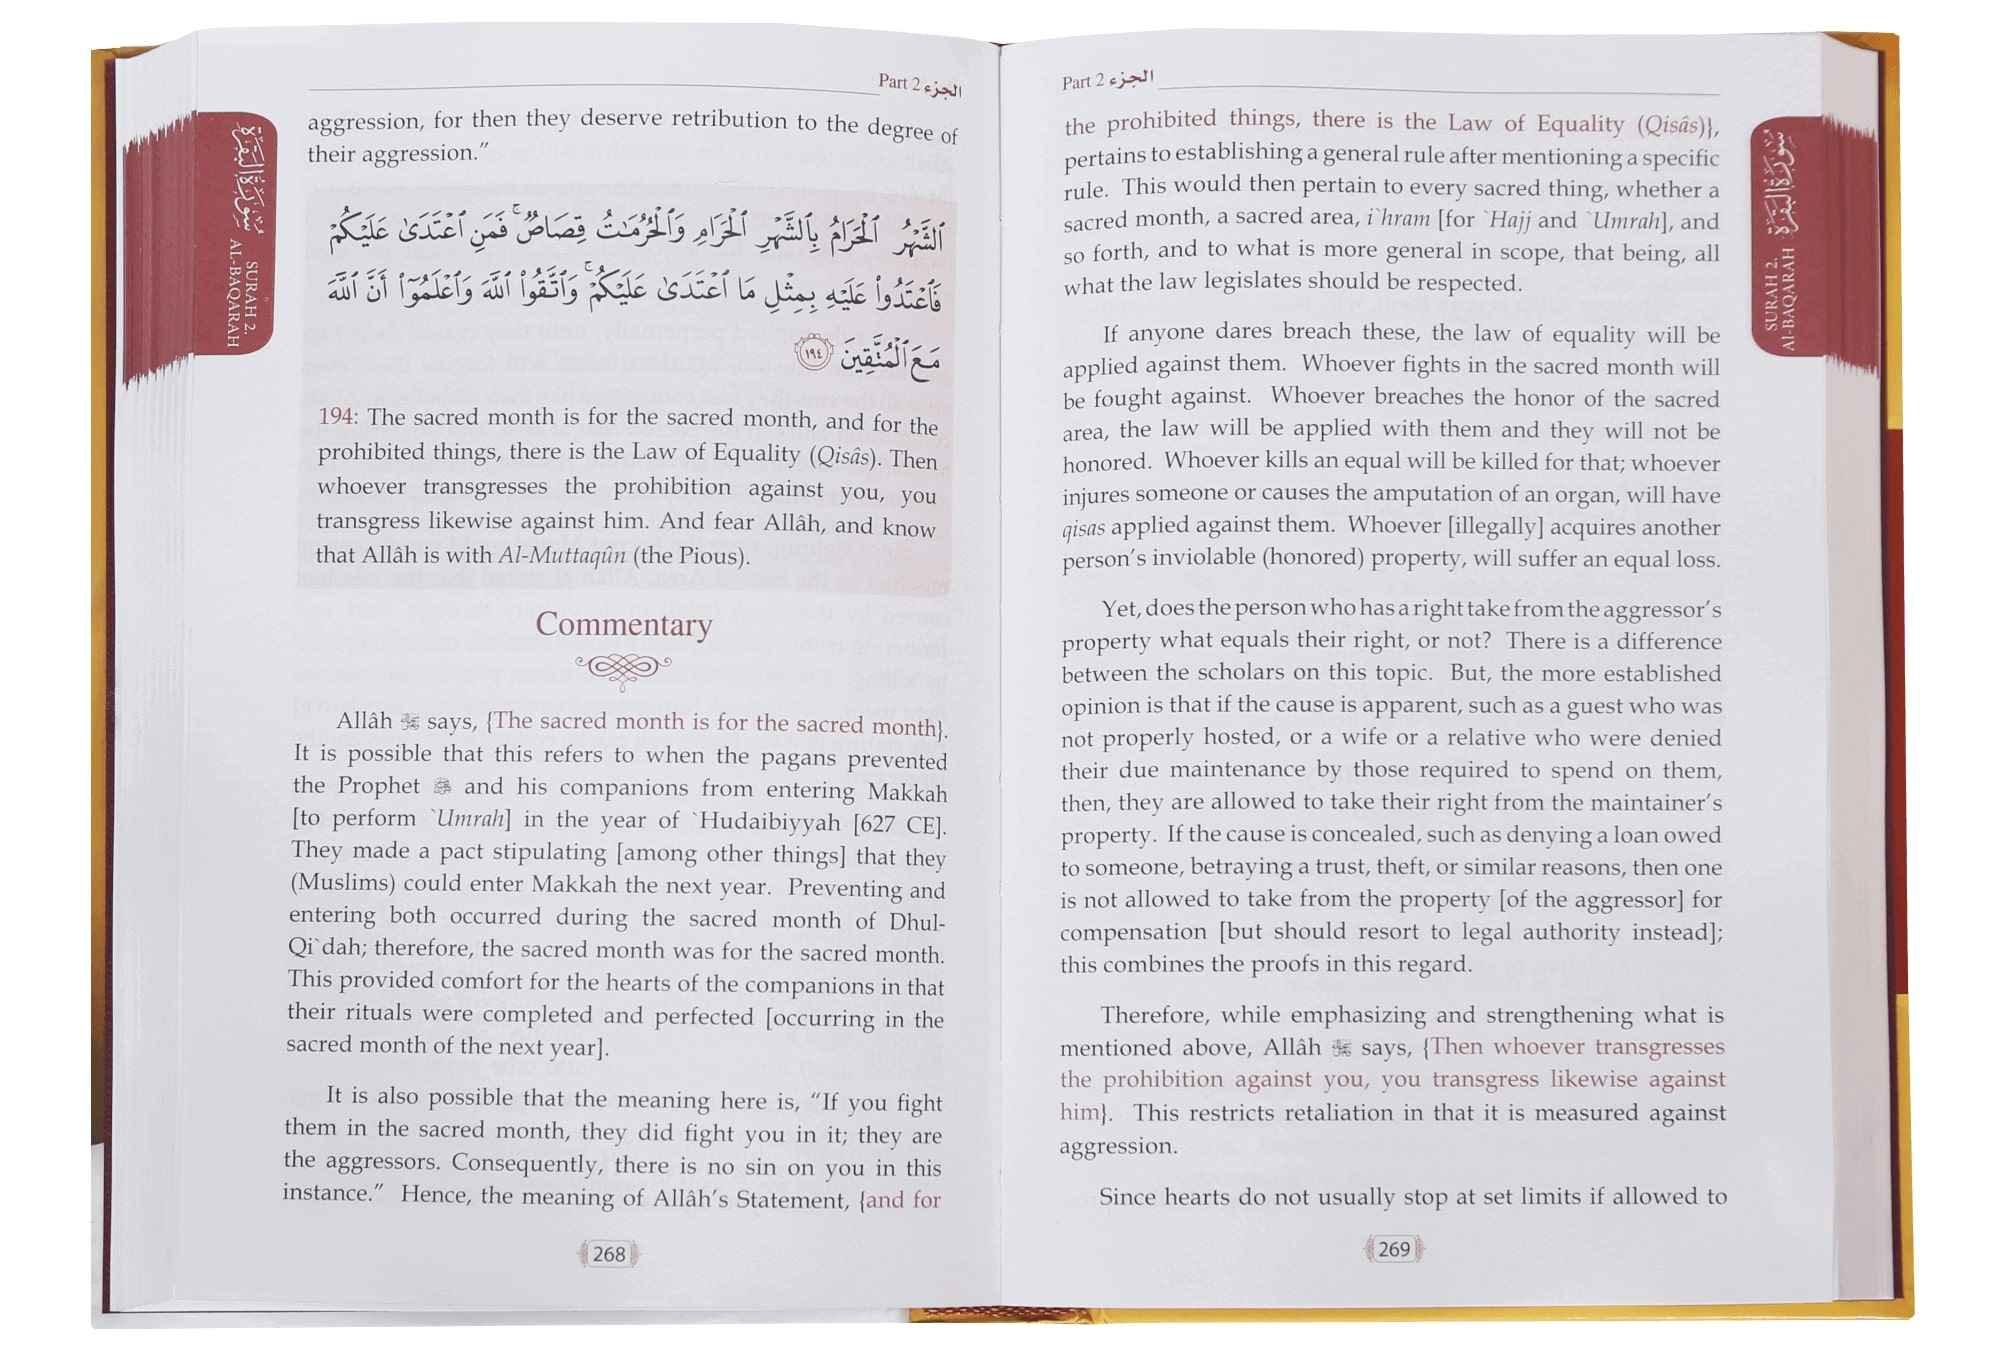 Part 2 الجزء
aggression, for then they deserve retribution to the degree of
their aggression.”
ٱلشَّهْرُ ٱلْحَرَامُ بِٱلشَّهْرِ ٱلْحَرَامِ وَٱلْحُرُمَٰتُ قِصَاصٌ ۚ فَمَنِ ٱعْتَدَىٰ عَلَيْكُمْ
فَٱعْتَدُوا۟ عَلَيْهِ بِمِثْلِ مَا ٱعْتَدَىٰ عَلَيْكُمْ ۚ وَٱتَّقُوا۟ ٱللَّهَ وَٱعْلَمُوٓا۟ أَنَّ ٱللَّهَ
مَعَ ٱلْمُتَّقِينَ ١٩٤
194: The sacred month is for the sacred month, and for the
prohibited things, there is the Law of Equality (Qisâs). Then
whoever transgresses the prohibition against you, you
transgress likewise against him. And fear Allâh, and know
that Allâh is with Al-Muttaqûn (the Pious).
Commentary
Allâh ﷻ says, {The sacred month is for the sacred month}.
It is possible that this refers to when the pagans prevented
the Prophet ﷺ and his companions from entering Makkah
[to perform `Umrah] in the year of `Hudaibiyyah [627 CE].
They made a pact stipulating [among other things] that they
(Muslims) could enter Makkah the next year. Preventing and
entering both occurred during the sacred month of Dhul-
Qi`dah; therefore, the sacred month was for the sacred month.
This provided comfort for the hearts of the companions in that
their rituals were completed and perfected [occurring in the
sacred month of the next year].
It is also possible that the meaning here is, “If you fight
them in the sacred month, they did fight you in it; they are
the aggressors. Consequently, there is no sin on you in this
instance.” Hence, the meaning of Allâh’s Statement, {and for
268
سُورَةُ البَقَرَة
SURAH 2.
AL-BAQARAH
Part 2 الجزء
the prohibited things, there is the Law of Equality (Qisâs)},
pertains to establishing a general rule after mentioning a specific
rule. This would then pertain to every sacred thing, whether a
sacred month, a sacred area, i`hram [for `Hajj and `Umrah], and
so forth, and to what is more general in scope, that being, all
what the law legislates should be respected.
If anyone dares breach these, the law of equality will be
applied against them. Whoever fights in the sacred month will
be fought against. Whoever breaches the honor of the sacred
area, the law will be applied with them and they will not be
honored. Whoever kills an equal will be killed for that; whoever
injures someone or causes the amputation of an organ, will have
qisas applied against them. Whoever [illegally] acquires another
person’s inviolable (honored) property, will suffer an equal loss.
Yet, does the person who has a right take from the aggressor’s
property what equals their right, or not? There is a difference
between the scholars on this topic. But, the more established
opinion is that if the cause is apparent, such as a guest who was
not properly hosted, or a wife or a relative who were denied
their due maintenance by those required to spend on them,
then, they are allowed to take their right from the maintainer’s
property. If the cause is concealed, such as denying a loan owed
to someone, betraying a trust, theft, or similar reasons, then one
is not allowed to take from the property [of the aggressor] for
compensation [but should resort to legal authority instead];
this combines the proofs in this regard.
Therefore, while emphasizing and strengthening what is
mentioned above, Allâh ﷻ says, {Then whoever transgresses
the prohibition against you, you transgress likewise against
him}. This restricts retaliation in that it is measured against
aggression.
Since hearts do not usually stop at set limits if allowed to
269
سُورَةُ البَقَرَة
SURAH 2.
Al-BAQARAH